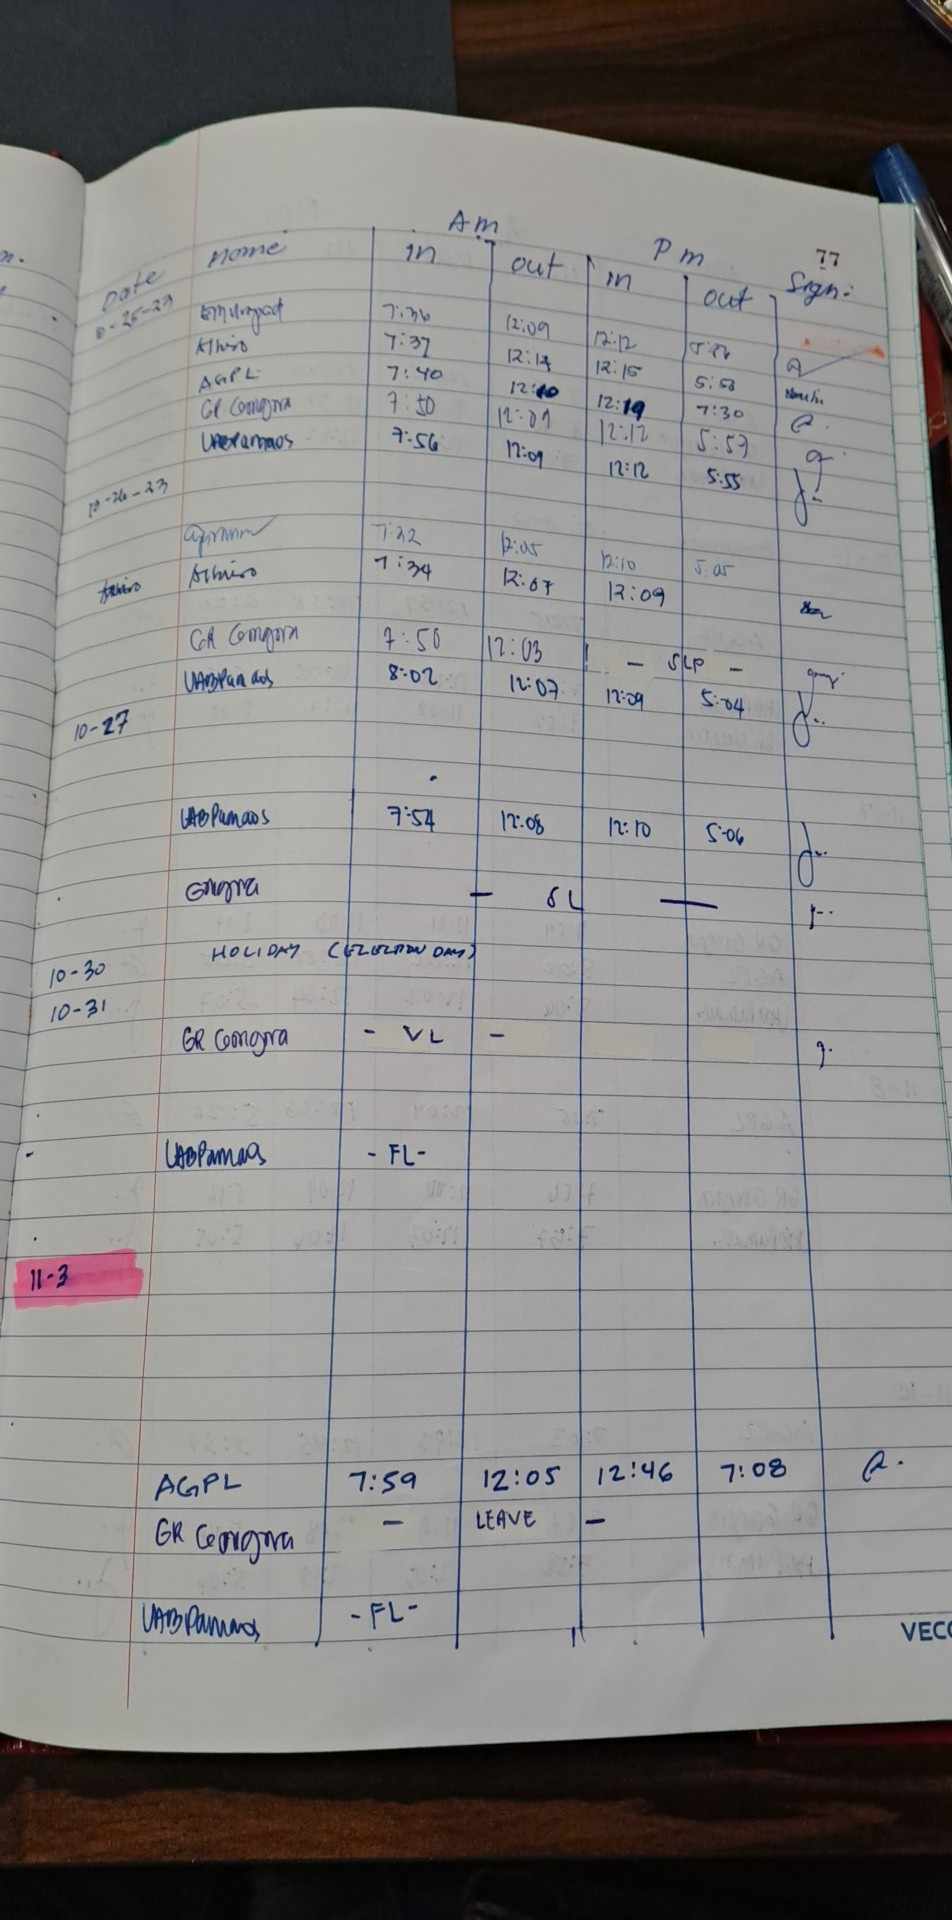 Am
Pm
77
Date Name in out in out Sign:
10-25-23
7:36 12:09 12:12
Albiro 7:37 12:14 12:15 5:53
AGPL 7:40 12:10 12:19 7:30
GR Congra 7:50 12:07 12:12 5:57
UABPamaos 7:56 12:09 12:12 5:55
10-26-23
7:32 12:05 12:10 5:05
Albiro 7:34 12:07 12:09
GR Congra 7:50 12:03 - SLP -
UABPamaos 8:02 12:07 12:09 5:04
10-27
UABPamaos 7:54 12:08 12:10 5:06
Congra - SL -
10-30 HOLIDAY (ELECTION DAY)
10-31
GR Congra - VL -
UABPamaos - FL -
11-3
AGPL 7:59 12:05 12:46 7:08
GR Congra - LEAVE -
UABPamaos - FL -
VECO